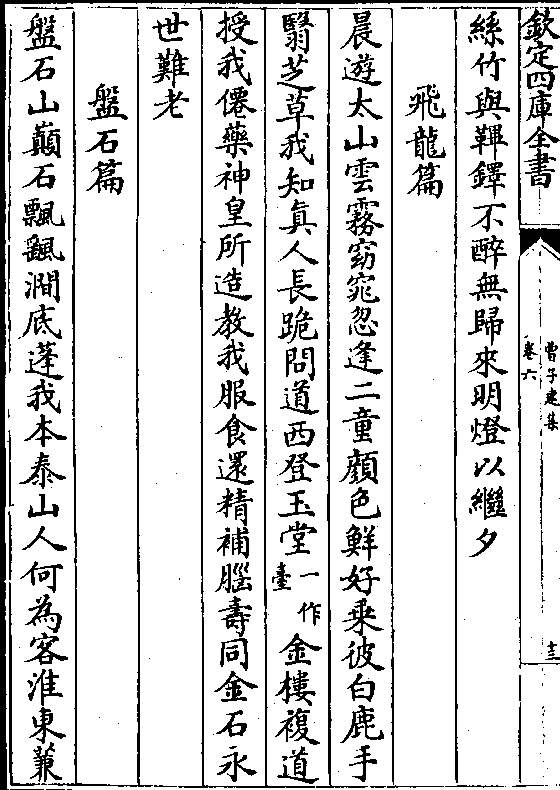 欽定四庫全書
曹子建集
卷六
十三
絲竹與鞞鐸不醉無歸來明燈以繼夕
飛龍篇
晨遊太山雲霧窈窕忽逢二童顏色鮮好乘彼白鹿手
翳芝草我知真人長跪問道西登玉堂一作臺金樓複道
授我僊藥神皇所造教我服食還精補腦壽同金石永
世難老
盤石篇
盤石山巔石飄颻澗底蓬我本泰山人何為客淮東蒹